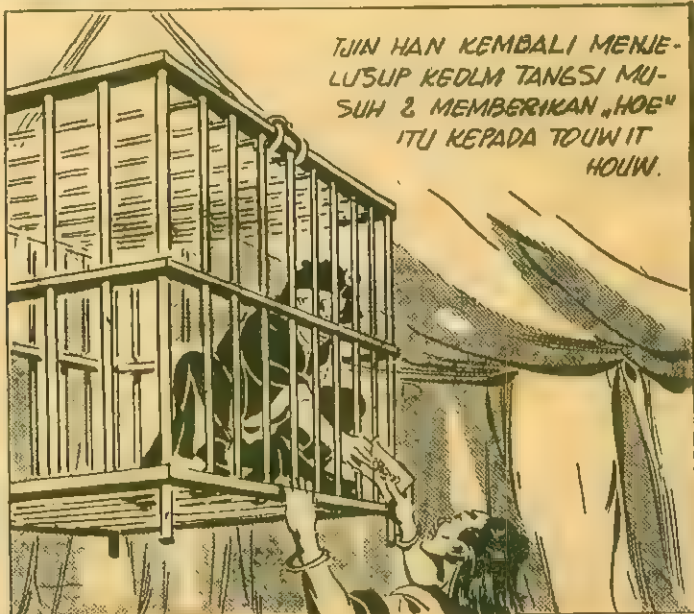 TJIN HAN KEMBALI MENJE-
LUSUP KEDLM TANGSI MU-
SUH 2 MEMBERIKAN „HOE"
ITU KEPADA TOUW IT
HOUW.